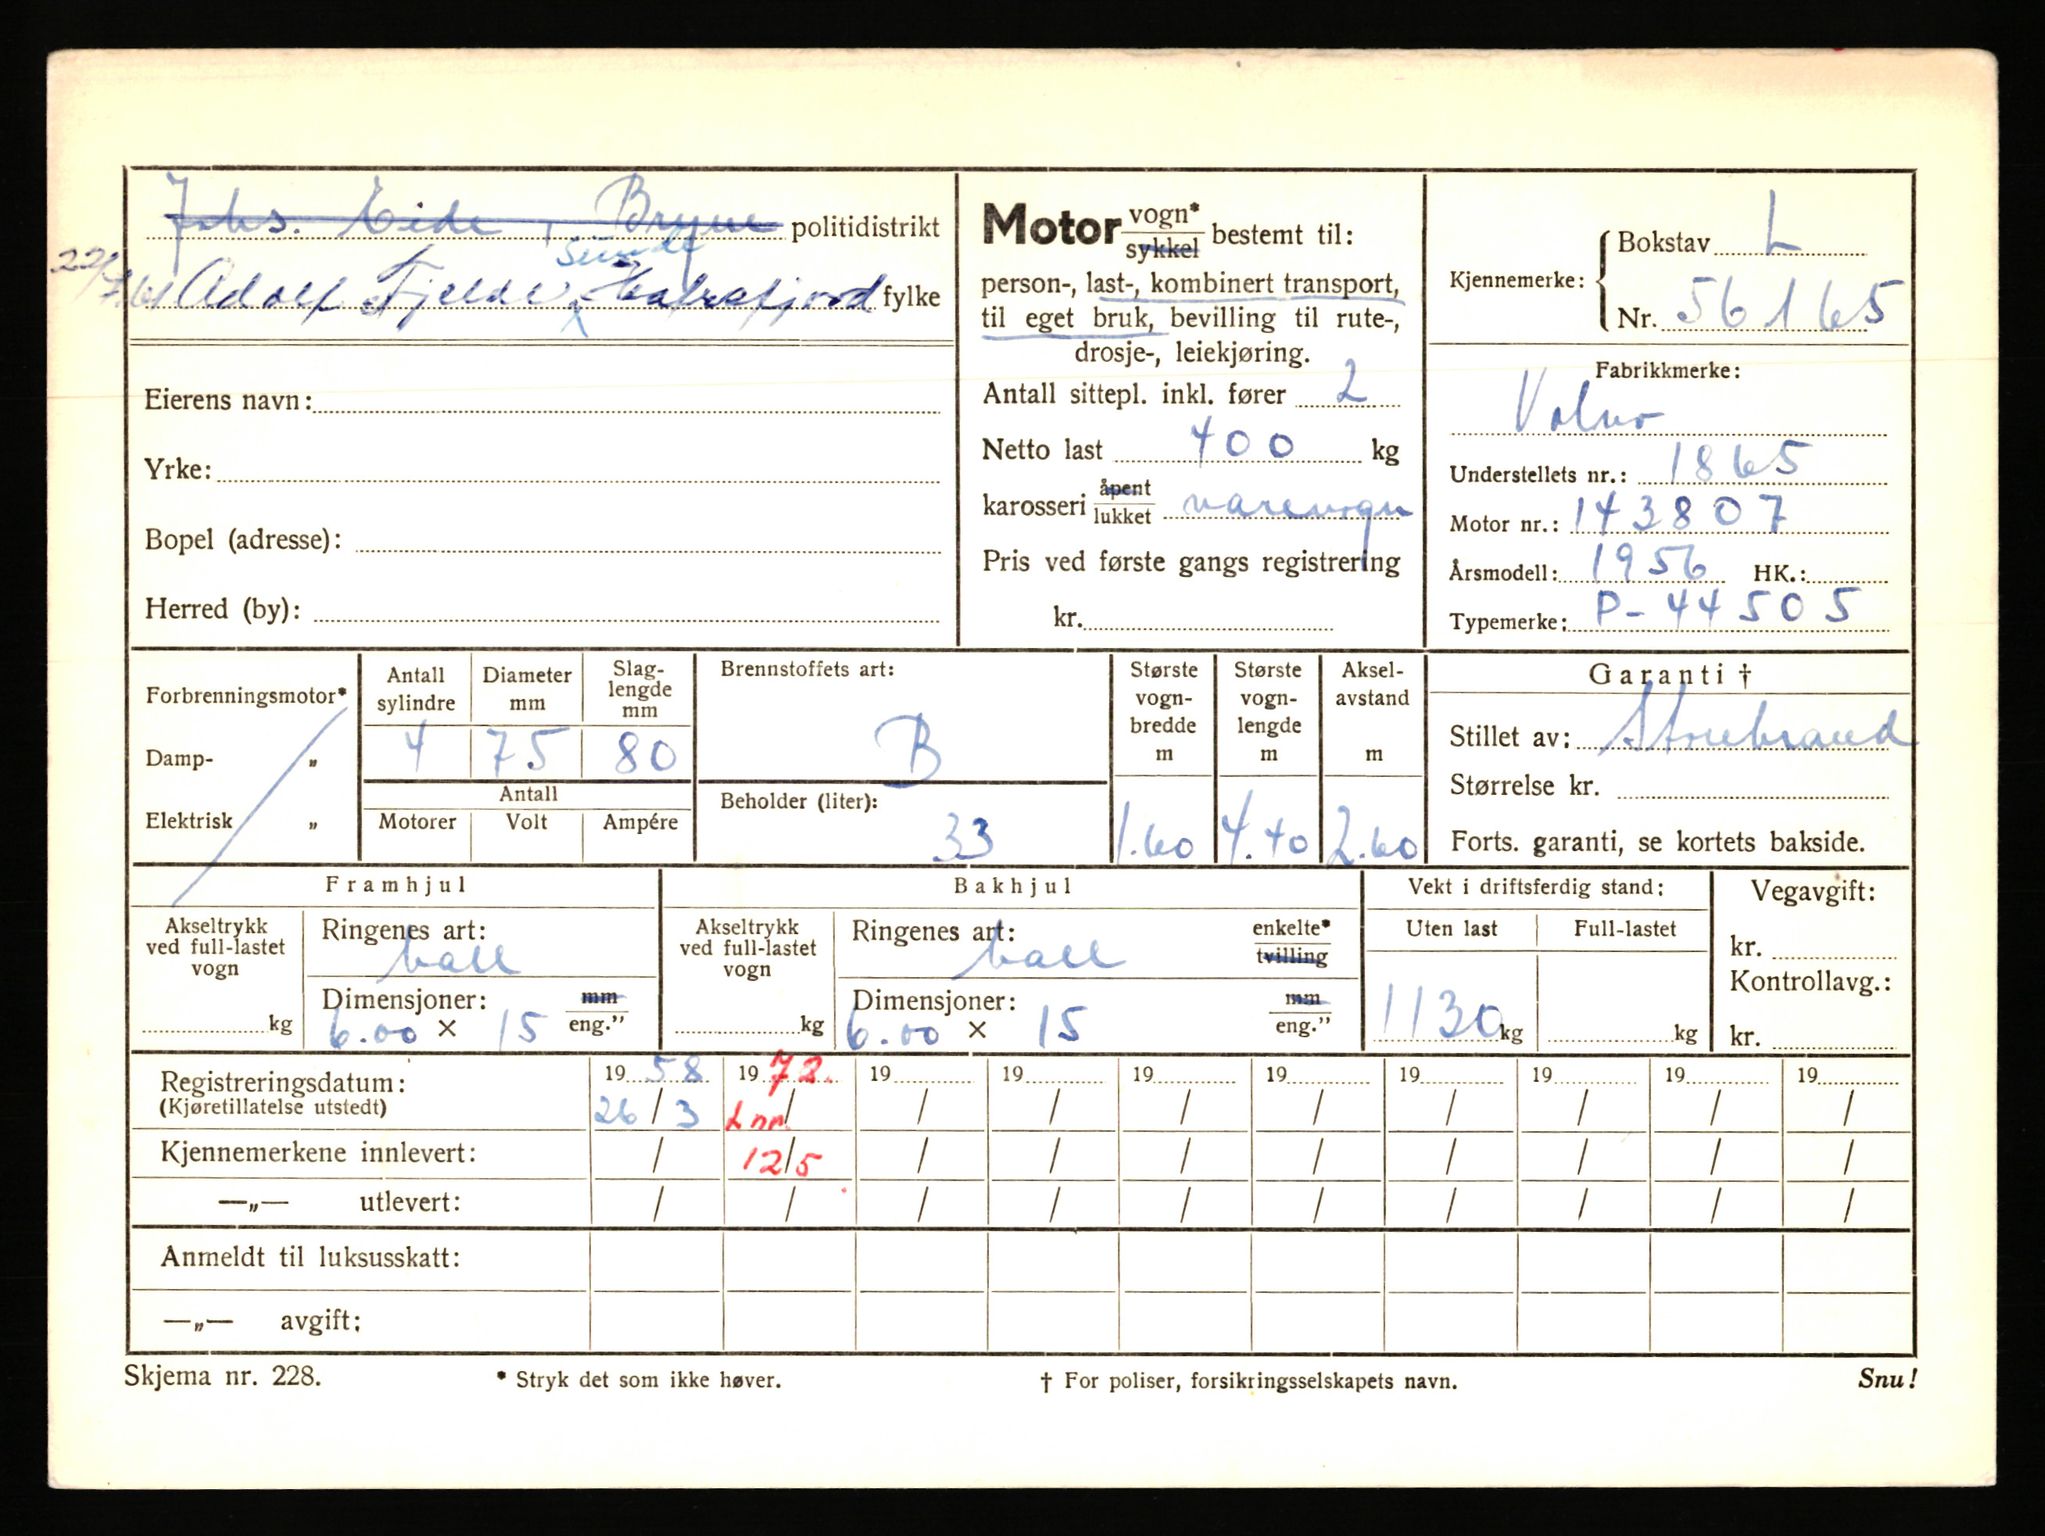 Johs. Eide, Bryne politidistrikt
Sunde
22/7.61 Adolf Fjelde, Hafrsfjord fylke
Eierens navn:
Yrke:
Bopel (adresse):
Herred (by):
Motor vogn*/sykkel bestemt til:
person-, last-, kombinert transport,
til eget bruk, bevilling til rute-,
drosje-, leiekjøring.
Antall sittepl. inkl. fører 2
Netto last 400 kg
karosseri åpent/lukket varevogn
Pris ved første gangs registrering
kr.
Kjennemerke: Bokstav L
Nr. 56165
Fabrikkmerke:
Volvo
Understellets nr.: 1865
Motor nr.: 143807
Årsmodell: 1956 HK.:
Typemerke: P-44505
Forbrenningsmotor*
Damp- „
Elektrisk „
Antall sylindre 4
Diameter mm 75
Slag-lengde mm 80
Antall
Motorer Volt Ampére
Brennstoffets art:
B
Beholder (liter):
33
Største vogn-bredde m 1.60
Største vogn-lengde m 4.40
Aksel-avstand m 2.60
Garanti †
Stillet av: Storebrand
Størrelse kr.
Forts. garanti, se kortets bakside.
Framhjul
Akseltrykk ved full-lastet vogn
kg
Ringenes art:
ball
Dimensjoner: mm/eng."
6.00 × 15
Bakhjul
Akseltrykk ved full-lastet vogn
kg
Ringenes art: enkelte*/tvilling
ball
Dimensjoner: mm/eng."
6.00 × 15
Vekt i driftsferdig stand:
Uten last Full-lastet
1130 kg kg
Vegavgift:
kr.
Kontrollavg.:
kr.
Registreringsdatum: 1958 1972. 19 19 19 19 19 19 19 19
(Kjøretillatelse utstedt) 26/3 Lnn. / / / / / / / / /
Kjennemerkene innlevert: / 12/5 / / / / / / / /
—„— utlevert: / / / / / / / / / /
Anmeldt til luksusskatt:
—„— avgift:
Skjema nr. 228. * Stryk det som ikke høver. † For poliser, forsikringsselskapets navn. Snu!